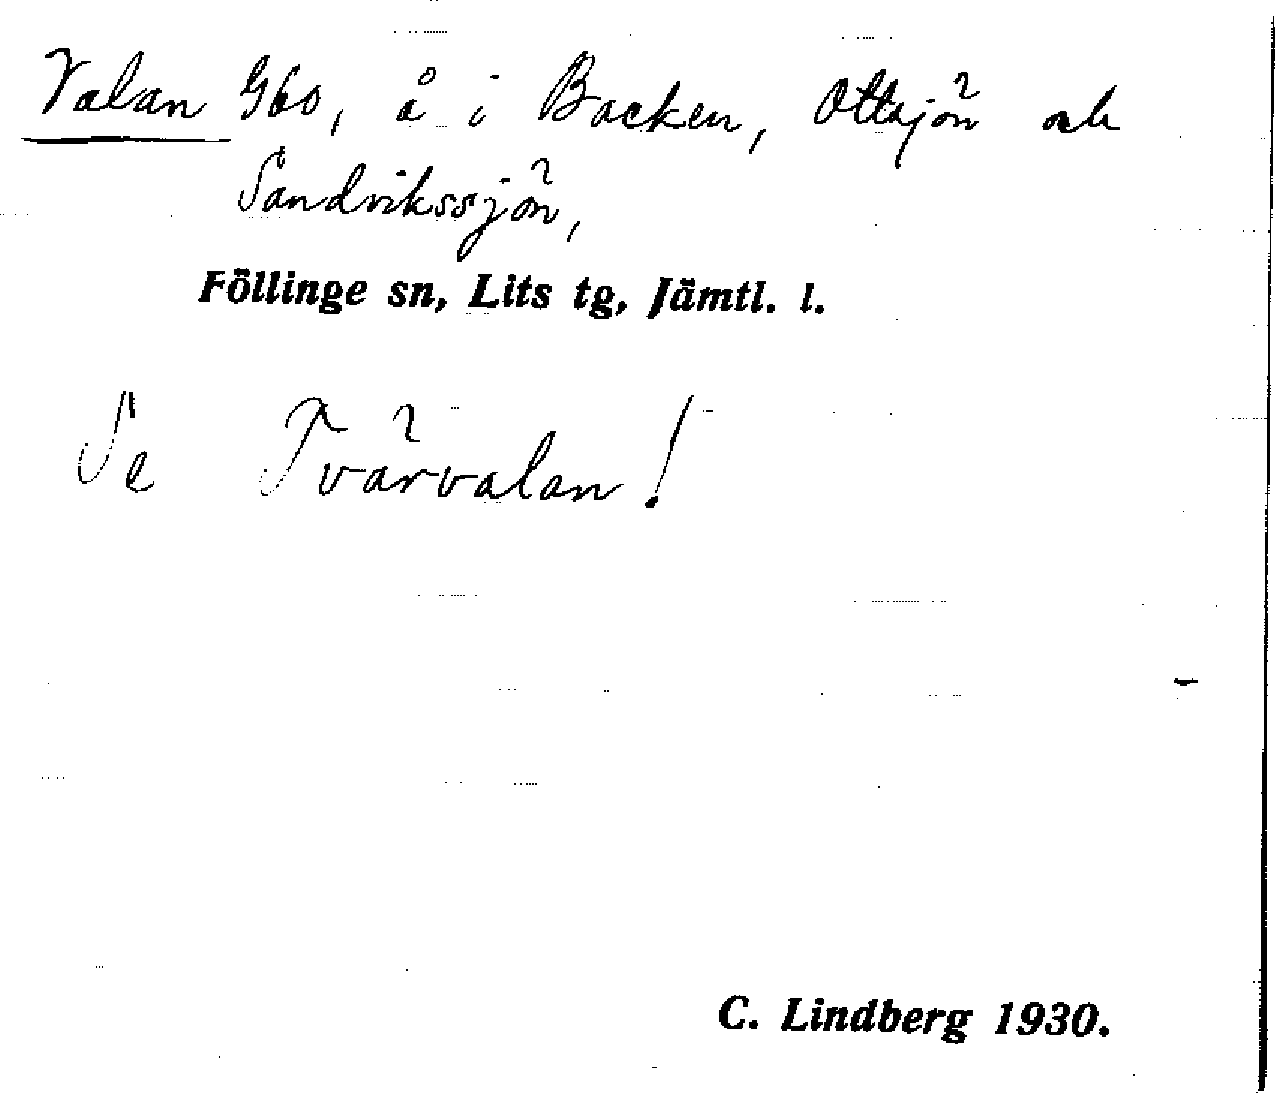 Valan Gbo, å i Backen, Ottsjön och
Sandvikssjön,
Föllinge sn, Lits tg, Jämtl. l.
Se Tvärvalan!
C. Lindberg 1930.